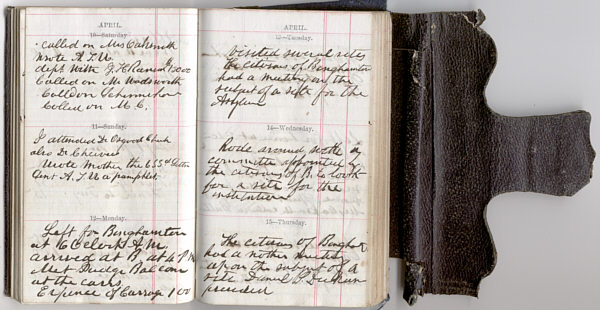 APRIL.
10—Saturday
called on Mrs Oaksmith
wrote A. T. W.
dept with J. H. 1000
Called on M. Wadsworth
Called on
Called on M. C.
11—Sunday.
I attended Dr Osgood Church
also Dr Cheever
Wrote Mother the 655th letter
Sent A. T. W a pamphlet
12—Monday.
Left for Binghamton
at 6 Oclock A M.
arrived at B. at 6 P M
Met Judge Balcom
at the cars
Expence of Carrage 1 00
APRIL.
13—Tuesday.
Visited several sites
the citizens of Binghamton
had a meeting on the
subject of a site for the
Asylum
14—Wednesday.
Rode around with a
committe appointed by
the citizens of B. to look
for a site for the
institution
15—Thursday.
The citizens of Bingham
had a nother meeting
upon the subject of a
site Daniel S Dickinson
presided